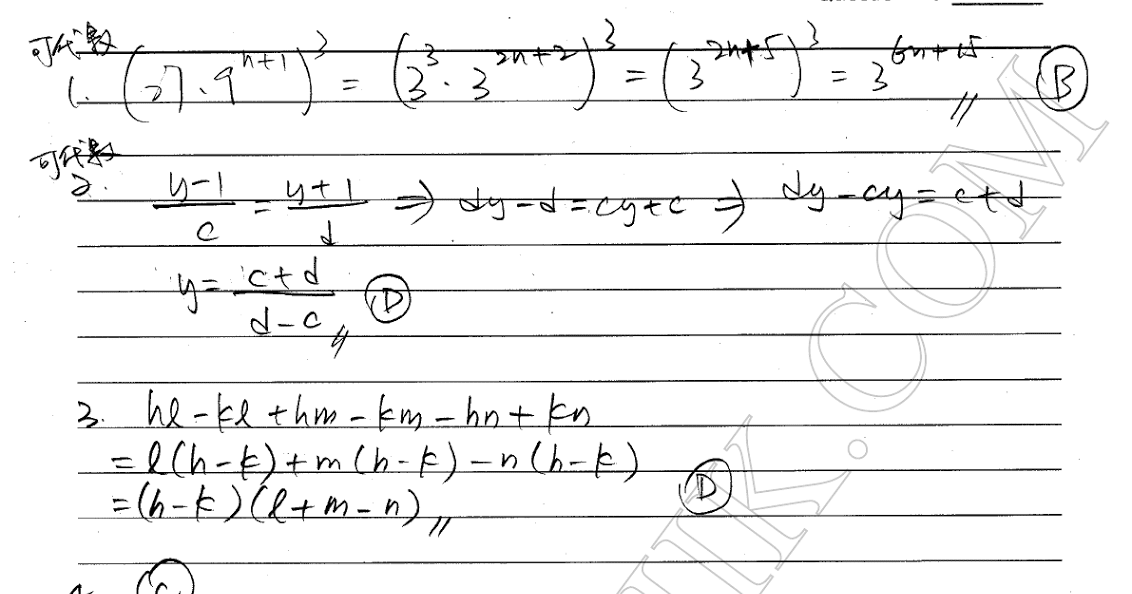 可代數
1. (27·9^{n+1})^3 = (3^3·3^{2n+2})^3 = (3^{2n+5})^3 = 3^{6n+15} // Ⓑ
可代數
2. \frac{y-1}{c} = \frac{y+1}{d} ⇒ dy-d=cy+c ⇒ dy-cy=c+d
y= \frac{c+d}{d-c} // Ⓓ
3. hl-kl+hm-km-hn+kn
=l(h-k)+m(h-k)-n(h-k)
=(h-k)(l+m-n) // Ⓓ
4. Ⓒ
.COM